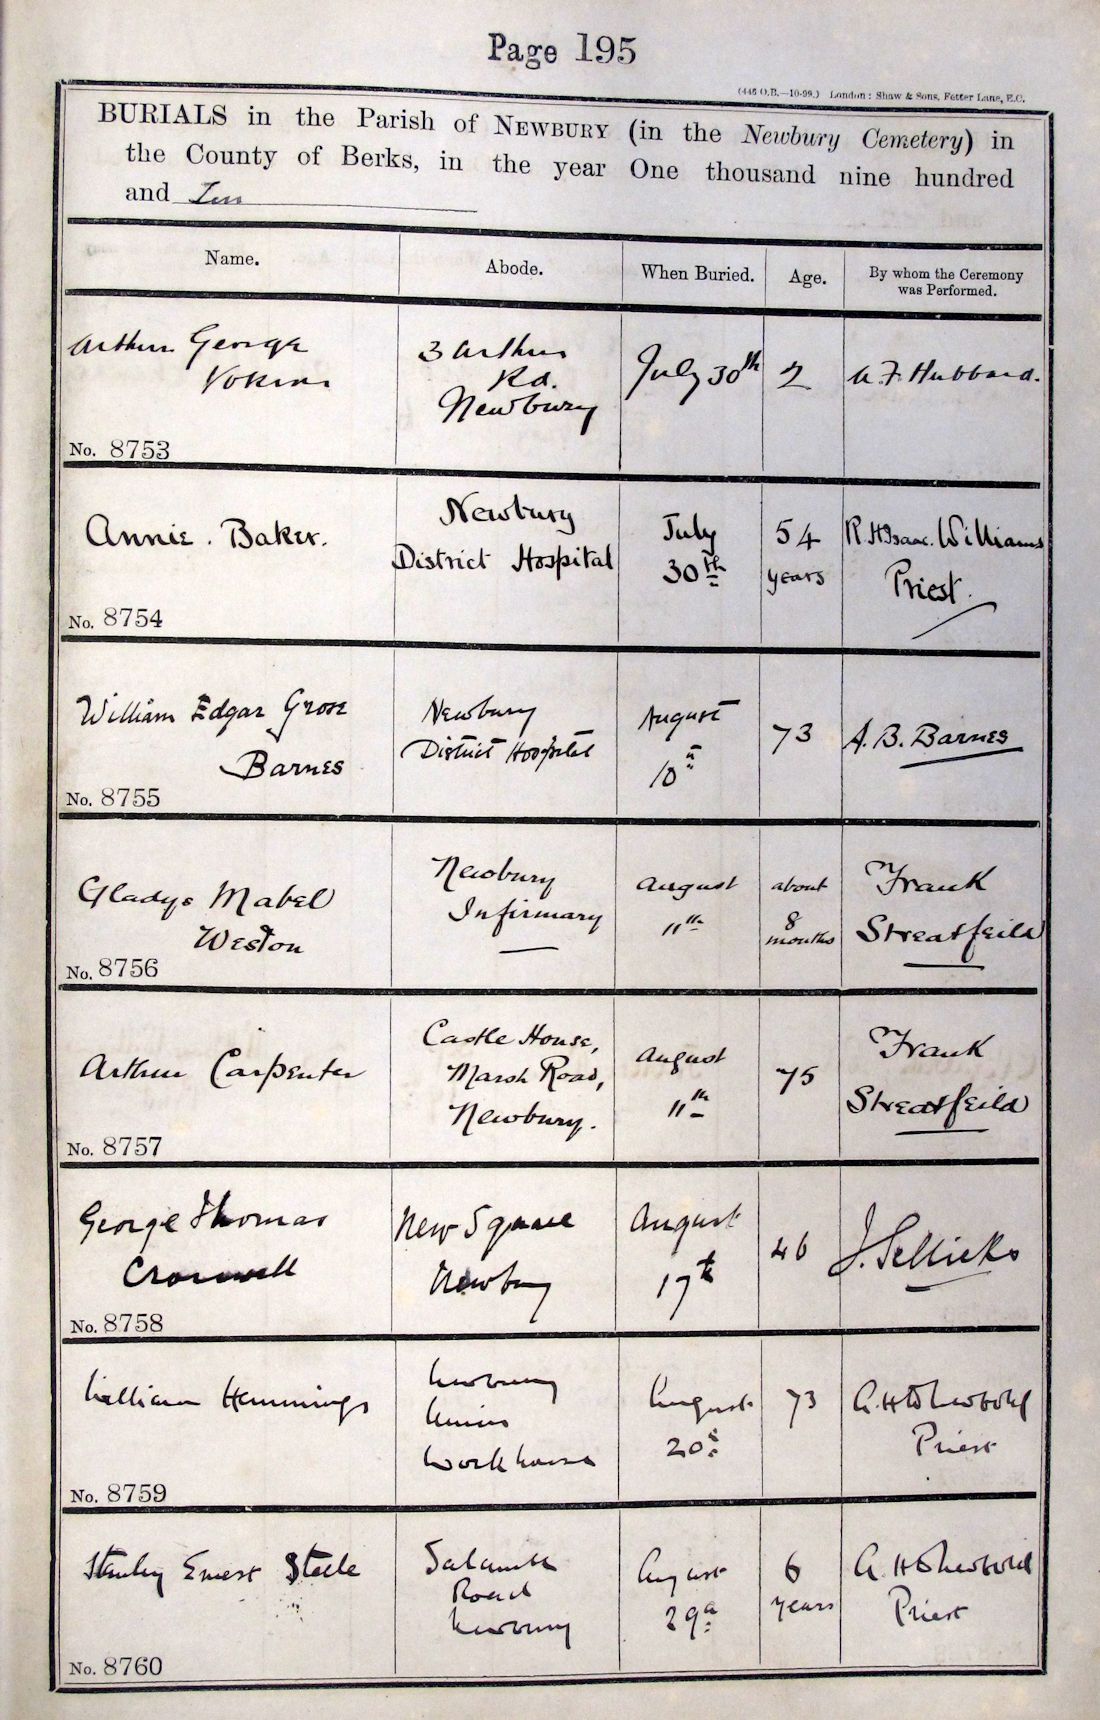 Page 195
(446 O.B.—10-99.) London: Shaw & Sons, Fetter Lane, E.C.
BURIALS in the Parish of NEWBURY (in the Newbury Cemetery) in
the County of Berks, in the year One thousand nine hundred
and Ten
Name. Abode. When Buried. Age. By whom the Ceremony
was Performed.
Arthur George
Vokins
3 Arthur
Rd.
Newbury
July 30th
2
A. F. Hubbard.
No. 8753
Annie. Baker.
Newbury
District Hospital
July
30th
54
years
R. H. Isaac. Williams
Priest.
No. 8754
William Edgar Grose
Barnes
Newbury
District Hospital
August
10th
73
A. B. Barnes
No. 8755
Gladys Mabel
Weston
Newbury
Infirmary
August
11th
about
8
months
Frank
Streatfeild
No. 8756
Arthur Carpenter
Castle House,
Marsh Road,
Newbury.
August
11th
75
Frank
Streatfeild
No. 8757
George Thomas
Cromwell
New Square
Newbury
August
17th
46
J. Sellicks
No. 8758
William Hemmings
Newbury
Union
Workhouse
August
20th
73
Priest
No. 8759
Stanley Ernest Steele
Road
Newbury
August
29th
6
years
Priest
No. 8760